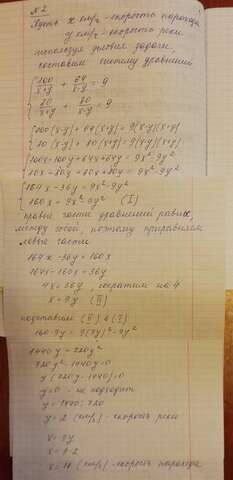 №2
Пусть х км/ч - скорость парохода
у км/ч - скорость реки
используя условия задачи,
составим систему уравнений
100/(x+y) + 64/(x-y) = 9
80/(x+y) + 80/(x-y) = 9
100(x-y) + 64(x+y) = 9(x-y)(x+y)
80(x-y) + 80(x+y) = 9(x-y)(x+y)
100x-100y+64x+64y = 9x²-9y²
80x-80y+80x+80y = 9x²-9y²
164x-36y = 9x²-9y²
160x = 9x²-9y² (I)
правые части уравнений равны
между собой, поэтому приравняем
левые части
164x-36y = 160x
164x-160x=36y
4x=36y, сократим на 4
x=9y (II)
подставим (II) в (I)
160·9y = 9(9y)²-9y²
1440y=720y²
720y²-1440y=0
y(720y-1440)=0
y=0 - не подходит
y=1440:720
y=2 (км/ч) - скорость реки
x=9y
x=9·2
x=18 (км/ч) - скорость парохода